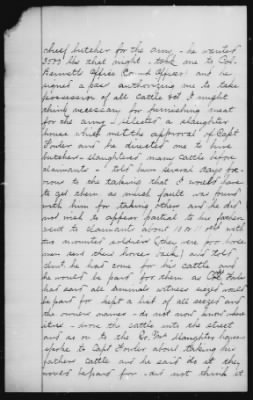 chief butcher for the army - he wanted
3500 lbs that night - took me to Col.
Bennetts Office Co - Officer and he
signed a pass authorizing me to take
possession of all Cattle &c I might
think necessary for furnishing meat
for the army - I selected a slaughter
house which met the approval of Capt
Fowler and he directed me to hire
butchers - slaughtered many Cattle before
claimants - told him several days
to the taking that I would have
to get them as much fault was found
with him for taking others and he did
not wish to appear partial to his father
went to claimants about 10 or 11 with
two mounted soldiers they were for
men and there horses and told
that he had come for his cattle and
he would be paid for them as Capt Fowler
had said all animals witness seized would
be paid for kept a list of all seized and
the owners names - do not now know where
it is - drove the cattle into the street
and on to the slaughter house
spoke to Capt Fowler about taking his
fathers cattle and he said do it they
would be paid for - did not think it